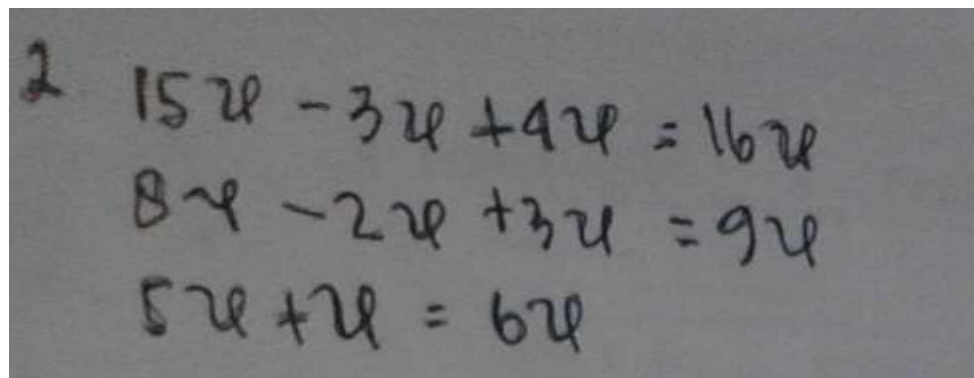 2 15x - 3x + 4x = 16x
8x - 2x + 3x = 9x
5x + x = 6x